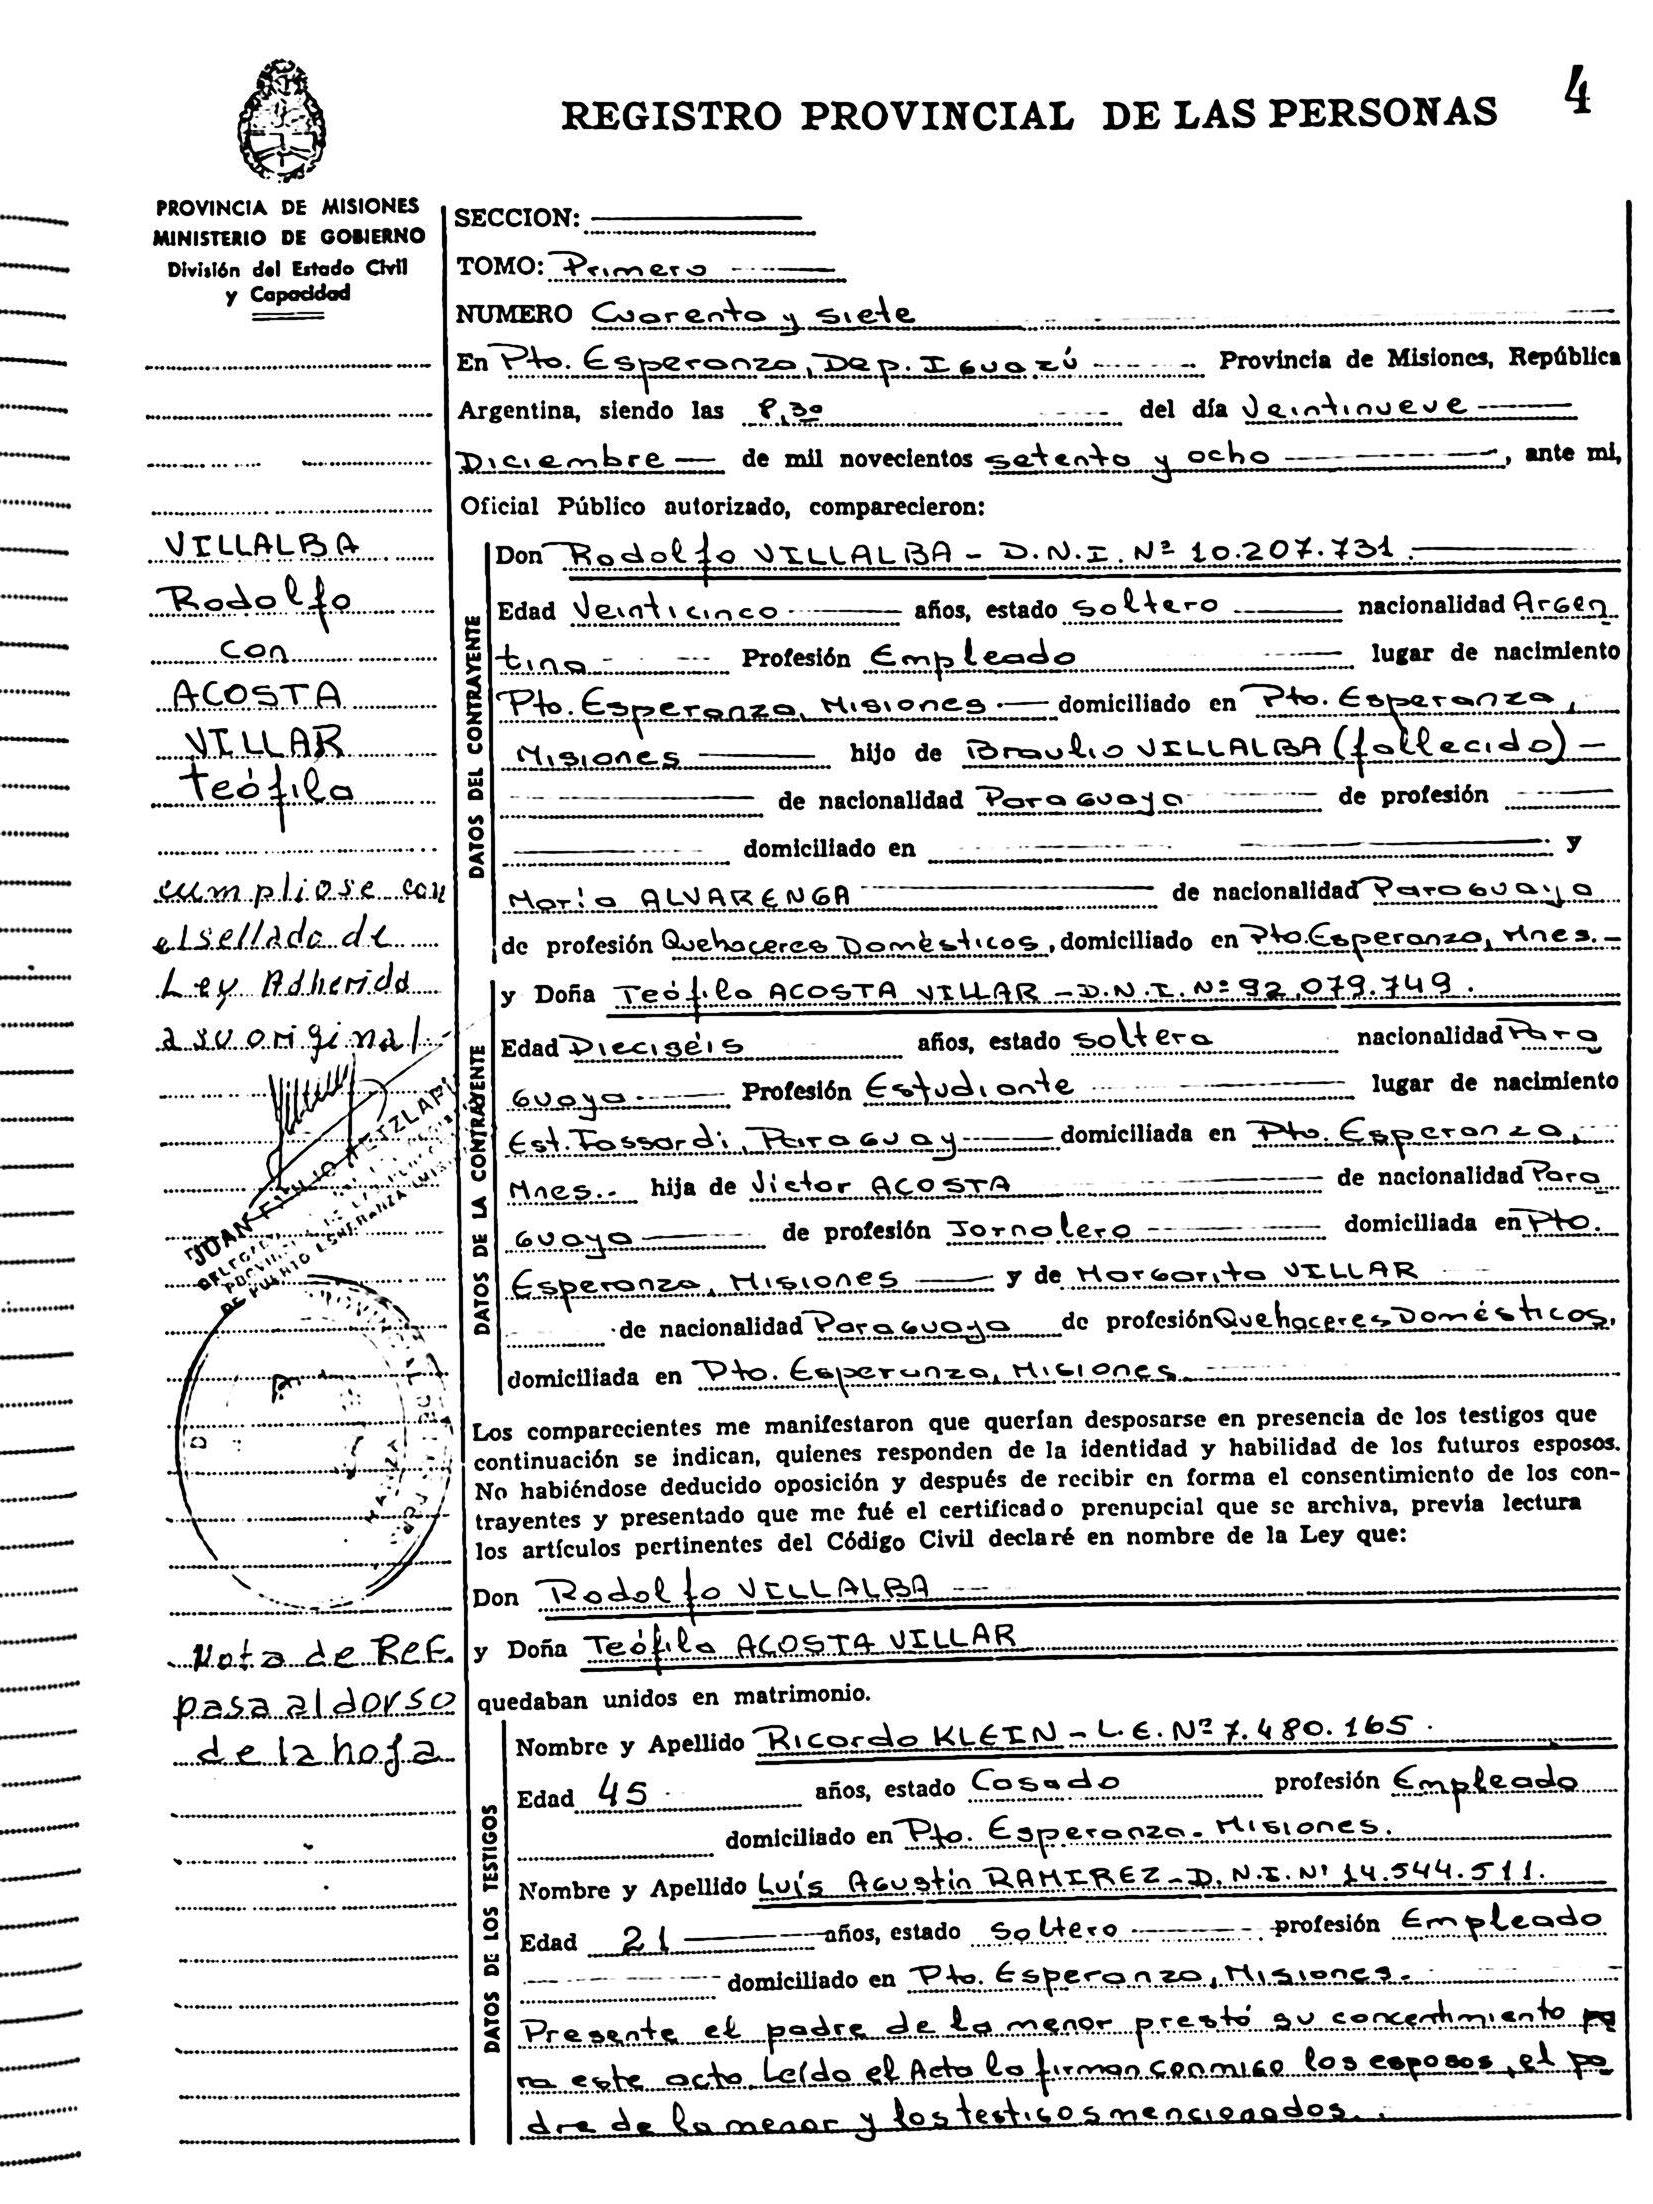 4
REGISTRO PROVINCIAL DE LAS PERSONAS
PROVINCIA DE MISIONES
MINISTERIO DE GOBIERNO
División del Estado Civil
y Capacidad
VILLALBA
Rodolfo
con
ACOSTA
VILLAR
Teófila
cumpliose con
el sellado de
Ley Adherida
a su original
JUAN
DE PUERTO ESPERANZA
Nota de REF.
pasa al dorso
de la hoja
SECCION:
TOMO: Primero
NUMERO Cuarenta y siete
En Pto. Esperanza, Dep. Iguazú Provincia de Misiones, República
Argentina, siendo las 8,30 del día Veintinueve
Diciembre de mil novecientos setenta y ocho, ante mi,
Oficial Público autorizado, comparecieron:
DATOS DEL CONTRAYENTE
Don Rodolfo VILLALBA - D.N.I. Nº 10.207.731.
Edad Veinticinco años, estado soltero nacionalidad Argen
tina Profesión Empleado lugar de nacimiento
Pto. Esperanza, Misiones domiciliado en Pto. Esperanza,
Misiones hijo de Braulio VILLALBA (fallecido) -
de nacionalidad Paraguaya de profesión
domiciliado en y
María ALVARENGA de nacionalidad Paraguaya
de profesión Quehaceres Domésticos, domiciliado en Pto. Esperanza, Mnes. -
DATOS DE LA CONTRAYENTE
y Doña Teófila ACOSTA VILLAR - D.N.I. Nº 92.079.749.
Edad Dieciséis años, estado soltera nacionalidad Para
guaya Profesión Estudiante lugar de nacimiento
Est. Fassardi, Paraguay domiciliada en Pto. Esperanza,
Mnes. hija de Victor ACOSTA de nacionalidad Para
guaya de profesión Jornalero domiciliada en Pto.
Esperanza, Misiones y de Margarita VILLAR
de nacionalidad Paraguaya de profesión Quehaceres Domésticos,
domiciliada en Pto. Esperanza, Misiones.
Los comparecientes me manifestaron que querían desposarse en presencia de los testigos que
continuación se indican, quienes responden de la identidad y habilidad de los futuros esposos.
No habiéndose deducido oposición y después de recibir en forma el consentimiento de los con-
trayentes y presentado que me fué el certificado prenupcial que se archiva, previa lectura
los artículos pertinentes del Código Civil declaré en nombre de la Ley que:
Don Rodolfo VILLALBA
y Doña Teófila ACOSTA VILLAR
quedaban unidos en matrimonio.
DATOS DE LOS TESTIGOS
Nombre y Apellido Ricardo KLEIN - L.E. Nº 7.480.165.
Edad 45 años, estado Casado profesión Empleado
domiciliado en Pto. Esperanza - Misiones.
Nombre y Apellido Luís Agustín RAMIREZ - D.N.I. Nº 14.544.511.
Edad 21 años, estado soltero profesión Empleado
domiciliado en Pto. Esperanza, Misiones.
Presente el padre de la menor prestó su concentimiento pa
ra este acto. Leído el Acta la firman conmigo los esposos, el pa
dre de la menor y los testigos mencionados.